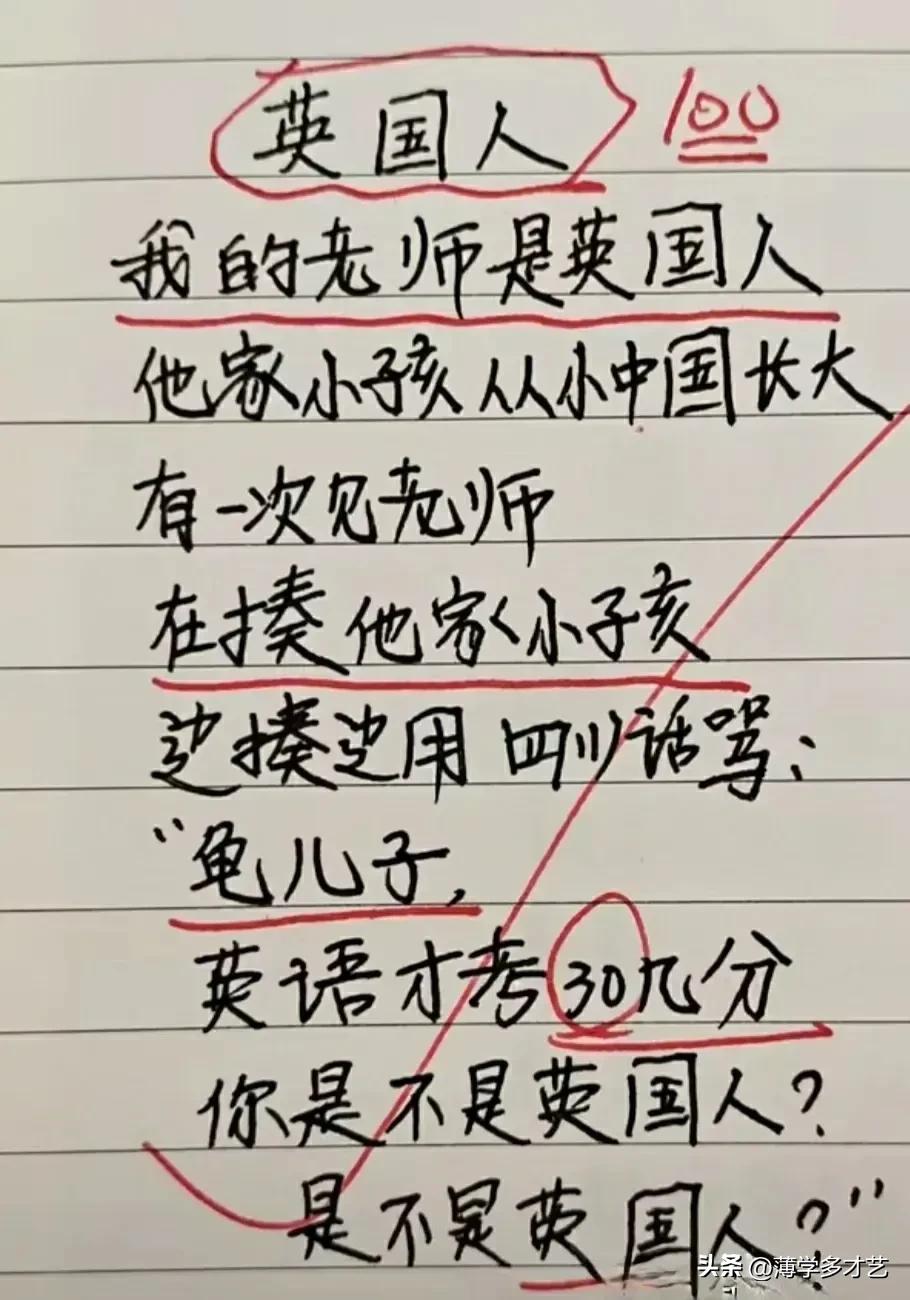 英国人 100
我的老师是英国人
他家小子孩从小中国长大
有一次见老师
在揍他家小子孩
边揍边用四川话骂:
“龟儿子,
英语才考30几分
你是不是英国人?
是不是英国人?”
头条@薄学多才艺